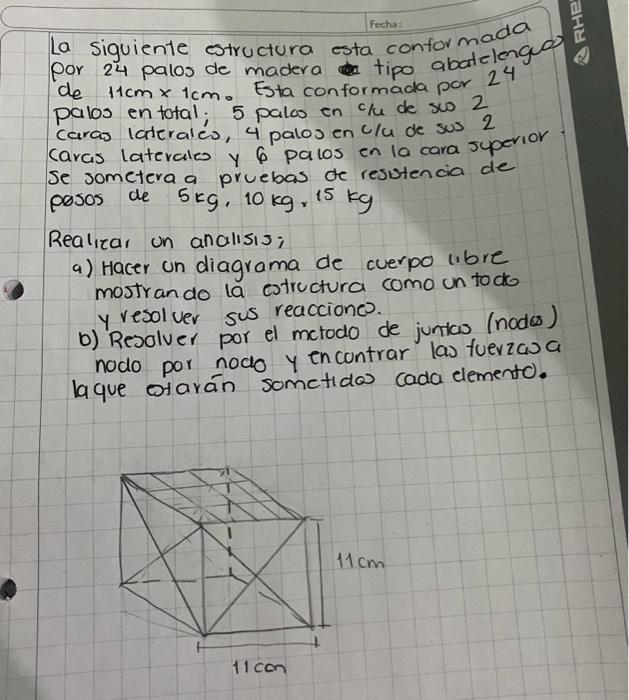 Fecha:
RHE
La siguiente estructura esta conformada
por 24 palos de madera tipo abatelenguas
de 11cm x 1cm. Esta conformada por 24
palos en total; 5 palos en c/u de sus 2
caras laterales, 4 palos en c/u de sus 2
caras laterales y 6 palos en la cara superior.
Se sometera a pruebas de resistencia de
pesos de 5kg, 10 kg, 15 kg
Realizar un analisis;
a) Hacer un diagrama de cuerpo libre
mostrando la estructura como un todo
y resolver sus reacciones.
b) Resolver por el metodo de juntas (nodos)
nodo por nodo y encontrar las fuerzas a
la que estarán sometidas cada elemento.
11cm
11cm